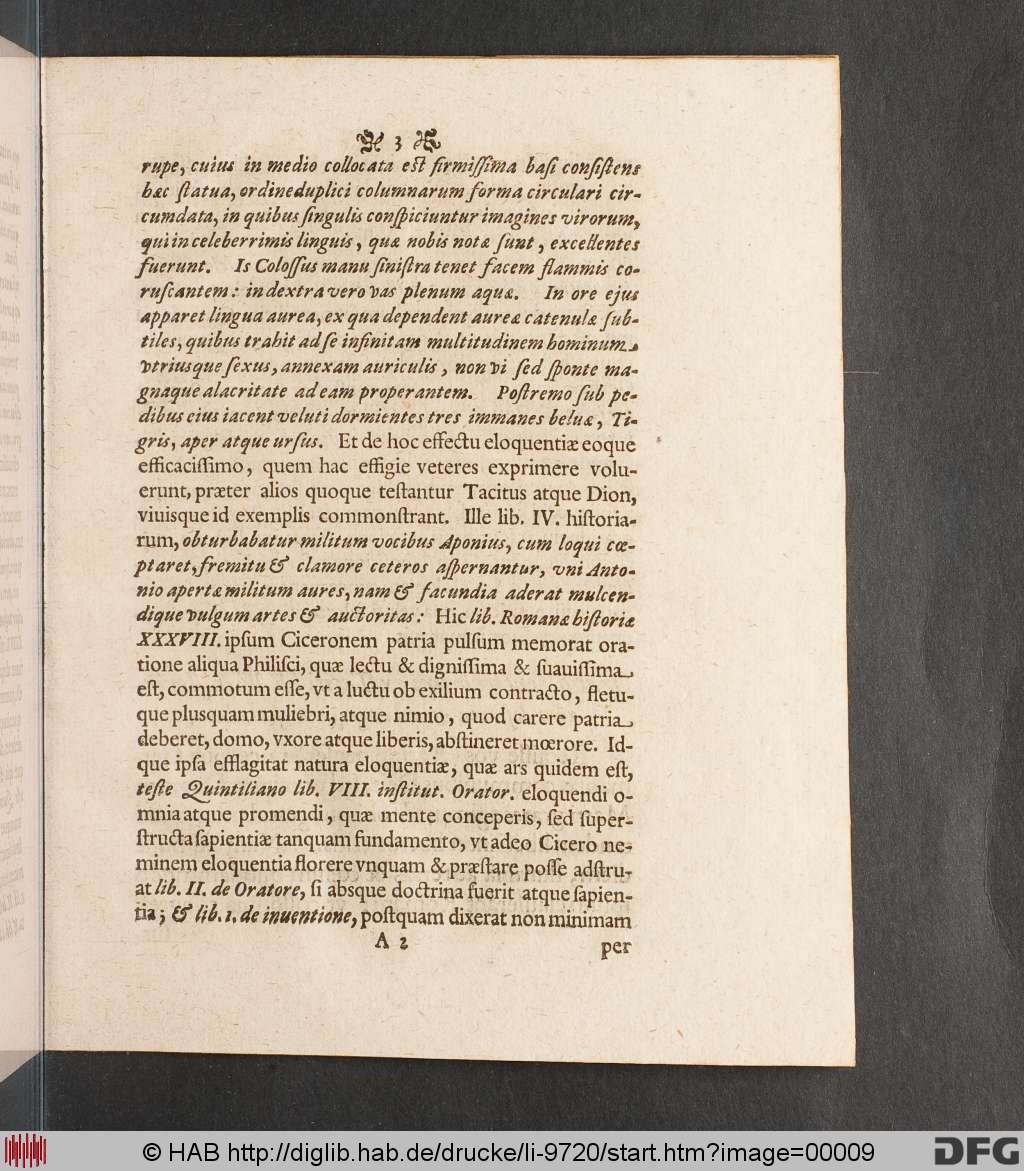 3
rupe, cuius in medio collocata est firmiſſima baſi conſiſtens
hæc ſtatua, ordine duplici columnarum forma circulari cir-
cumdata, in quibus ſingulis conſpiciuntur imagines virorum,
qui in celeberrimis linguis, quæ nobis notæ ſunt, excellentes
fuerunt. Is Coloſſus manu ſiniſtra tenet facem flammis co-
ruſcantem: in dextra vero vas plenum aquæ. In ore ejus
apparet lingua aurea, ex qua dependent aureæ catenulæ ſub-
tiles, quibus trahit ad ſe infinitam multitudinem hominum
vtriusque ſexus, annexam auriculis, non vi ſed ſponte ma-
gnaque alacritate ad eam properantem. Poſtremo ſub pe-
dibus eius iacent veluti dormientes tres immanes beluæ, Ti-
gris, aper atque urſus. Et de hoc effectu eloquentiæ eoque
efficaciſſimo, quem hac effigie veteres exprimere volu-
erunt, præter alios quoque teſtantur Tacitus atque Dion,
viuisque id exemplis commonſtrant. Ille lib. IV. hiſtoria-
rum, obturbabatur militum vocibus Aponius, cum loqui cœ-
ptaret, fremitu & clamore ceteros aſpernantur, vni Anto-
nio apertæ militum aures, nam & facundia aderat mulcen-
dique vulgum artes & auctoritas: Hic lib. Romanæ hiſtoriæ
XXXVIII. ipſum Ciceronem patria pulſum memorat ora-
tione aliqua Philiſci, quæ lectu & digniſſima & ſuauiſſima
eſt, commotum eſſe, vt a luctu ob exilium contracto, fletu-
que plusquam muliebri, atque nimio, quod carere patria
deberet, domo, vxore atque liberis, abſtineret mœrore. Id-
que ipſa efflagitat natura eloquentiæ, quæ ars quidem eſt,
teſte Quintiliano lib. VIII. inſtitut. Orator. eloquendi o-
mnia atque promendi, quæ mente conceperis, ſed ſuper-
ſtructa ſapientiæ tanquam fundamento, vt adeo Cicero ne-
minem eloquentia florere vnquam & præſtare poſſe adſtru-
at lib. II. de Oratore, ſi absque doctrina fuerit atque ſapien-
tia; & lib. 1. de inuentione, poſtquam dixerat non minimam
A 2 per
© HAB http://diglib.hab.de/drucke/li-9720/start.htm?image=00009
DFG